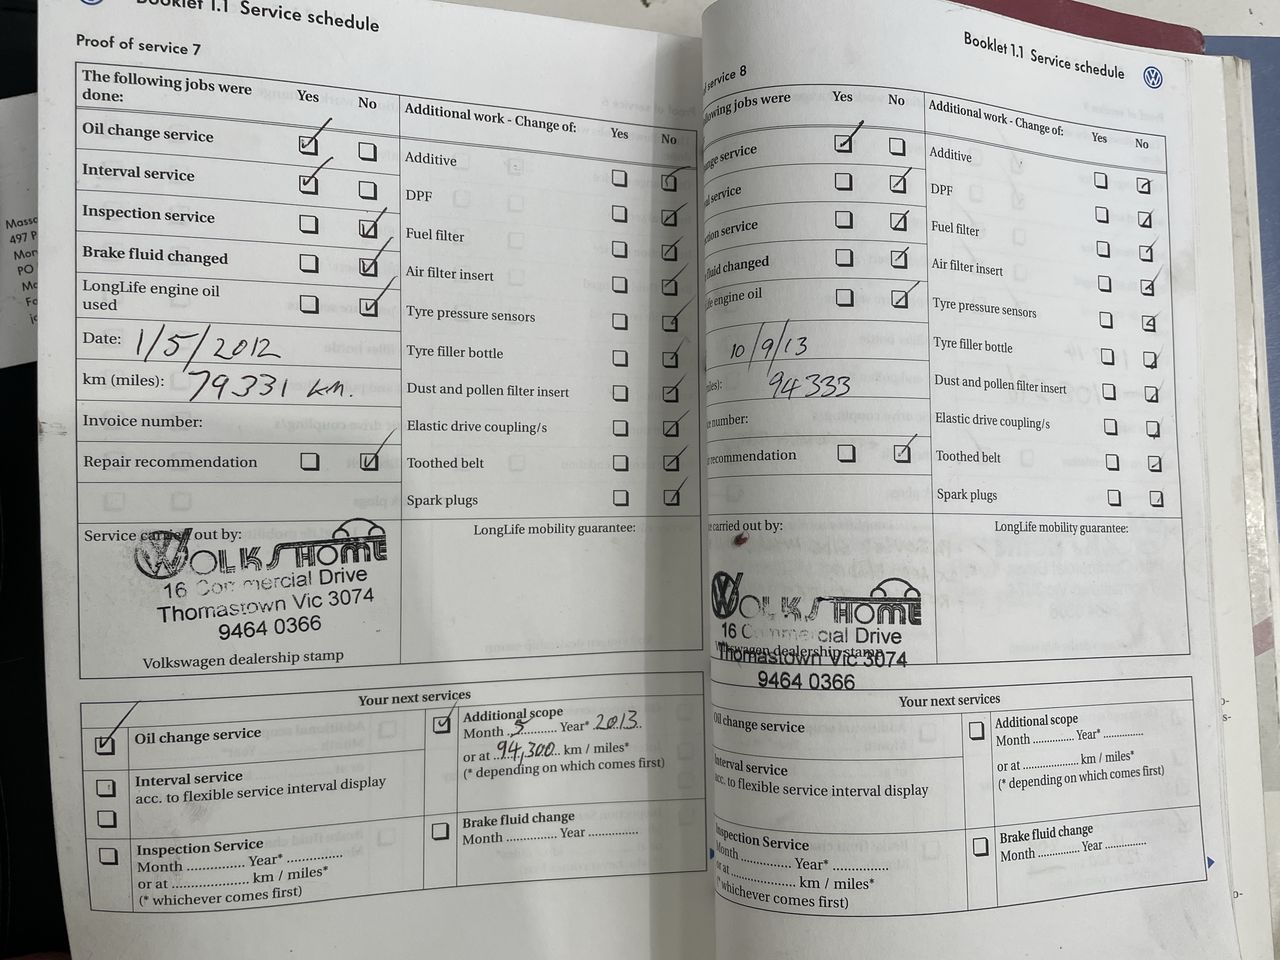 Booklet 1.1 Service schedule
Proof of service 7
The following jobs were done:
Yes No
Oil change service
Interval service
Inspection service
Brake fluid changed
LongLife engine oil used
Date: 1/5/2012
km (miles): 79331 km.
Invoice number:
Repair recommendation
Additional work - Change of:
Yes No
Additive
DPF
Fuel filter
Air filter insert
Tyre pressure sensors
Tyre filler bottle
Dust and pollen filter insert
Elastic drive coupling/s
Toothed belt
Spark plugs
Service carried out by:
WOLKSHOME
16 Commercial Drive
Thomastown Vic 3074
9464 0366
Volkswagen dealership stamp
LongLife mobility guarantee:
Your next services
Oil change service
Interval service
acc. to flexible service interval display
Inspection Service
Month ............ Year* ..............
or at ................... km / miles*
(* whichever comes first)
Additional scope
Month .5........ Year* 2013.
or at ..94,300.. km / miles*
(* depending on which comes first)
Brake fluid change
Month ............. Year .............
Booklet 1.1 Service schedule
service 8
owing jobs were
Yes No
nge service
service
tion service
fluid changed
ife engine oil
10/9/13
iles): 94333
e number:
recommendation
Additional work - Change of:
Yes No
Additive
DPF
Fuel filter
Air filter insert
Tyre pressure sensors
Tyre filler bottle
Dust and pollen filter insert
Elastic drive coupling/s
Toothed belt
Spark plugs
carried out by:
WOLKSHOME
16 Commercial Drive
Volkswagen dealership stamp
Thomastown Vic 3074
9464 0366
LongLife mobility guarantee:
Your next services
Oil change service
Interval service
acc. to flexible service interval display
Inspection Service
Month .............. Year* ..............
or at .................... km / miles*
(* whichever comes first)
Additional scope
Month ............. Year* .............
or at ................... km / miles*
(* depending on which comes first)
Brake fluid change
Month ............. Year .............